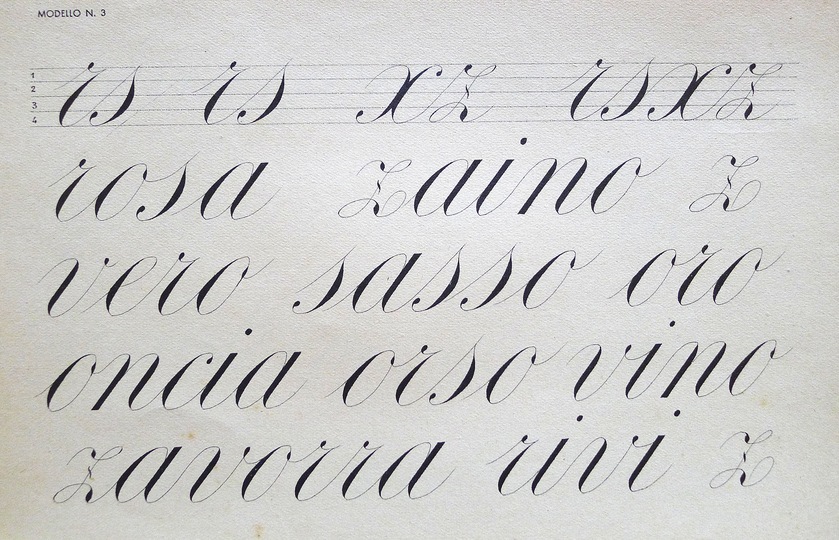 MODELLO N. 3
1
2
3
4
rs rs xz rsxz
rosa zaino z
vero sasso oro
oncia orso vino
zavorra rivi z